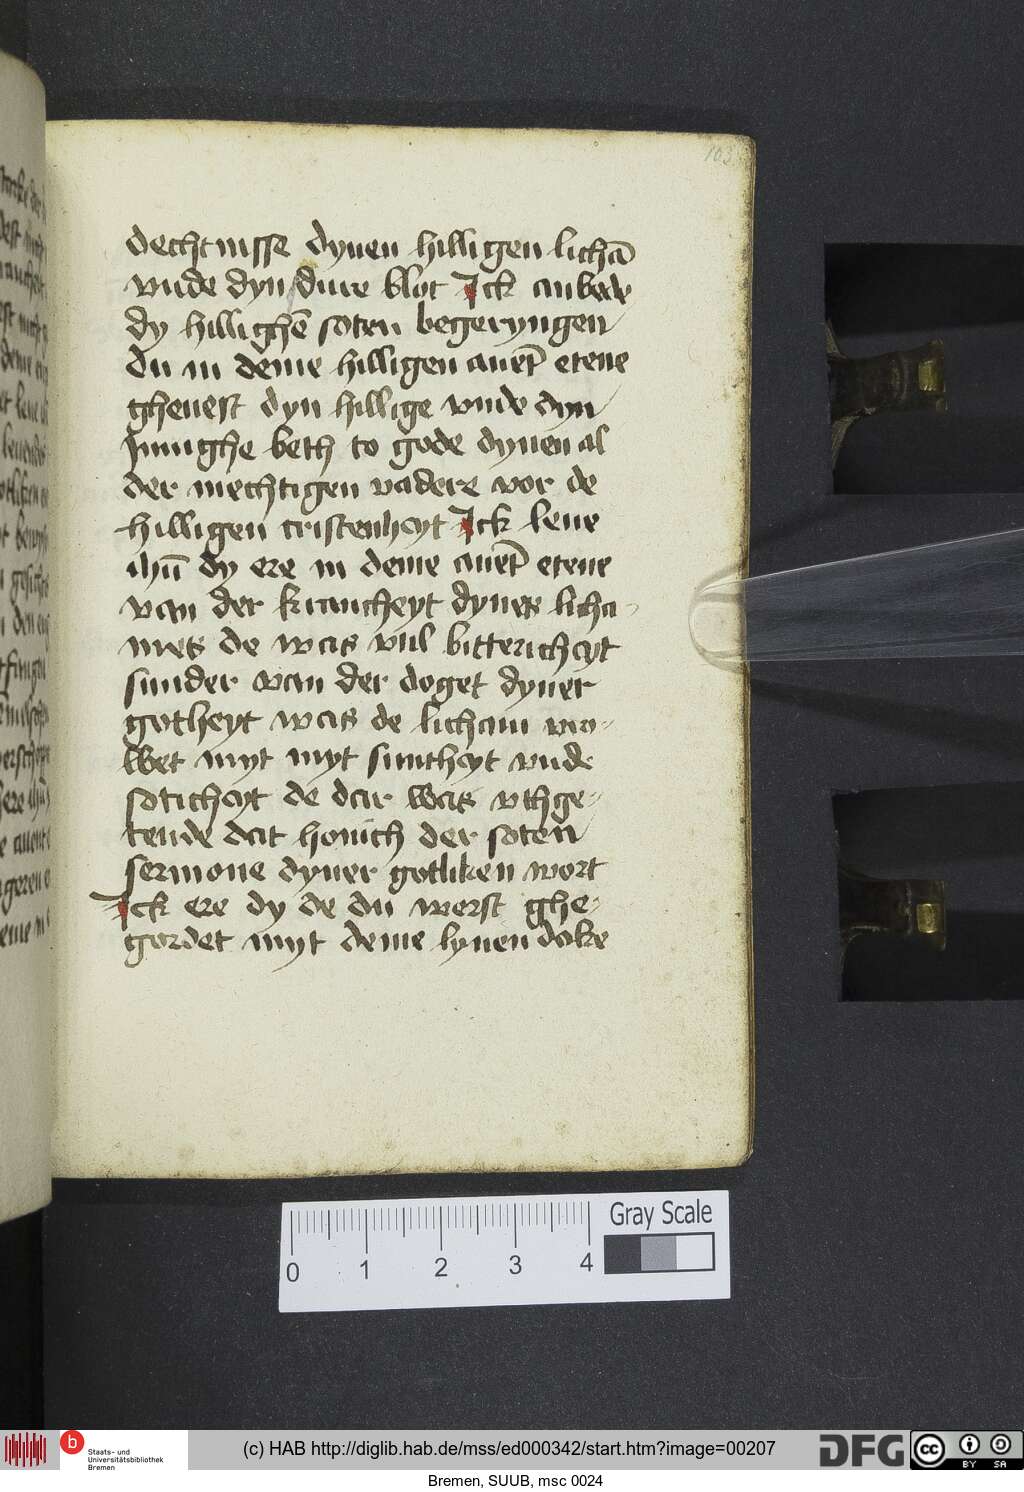 103
dechtnisse dynen hilligen lichā
vnde dyn dure blot Ick anbede
dy hillighē soten begeryngen
du in deme hilligen auēt etene
gheuest dyn hillige vnde dyn
Innighe beth to gode dynen al
der mechtigen vadere vor de
hilligen cristenheyt Ick leue
ihū dy ere in deme auēt etene
van der krancheyt dynes licha-
mes de was vul bittericheyt
sunder van der doget dyner
gotheyt was de licham vro-
wet myt myt suntheyt vnde
soticheyt de dar was vthge-
tende dat honich der soten
sermone dyner gotliken wort
Ick ere dy de du werst ghe-
gordet myt deme lynen doke
0 1 2 3 4
Gray Scale
b
Staats- und
Universitätsbibliothek
Bremen
(c) HAB http://diglib.hab.de/mss/ed000342/start.htm?image=00207
DFG
cc
BY SA
Bremen, SUUB, msc 0024